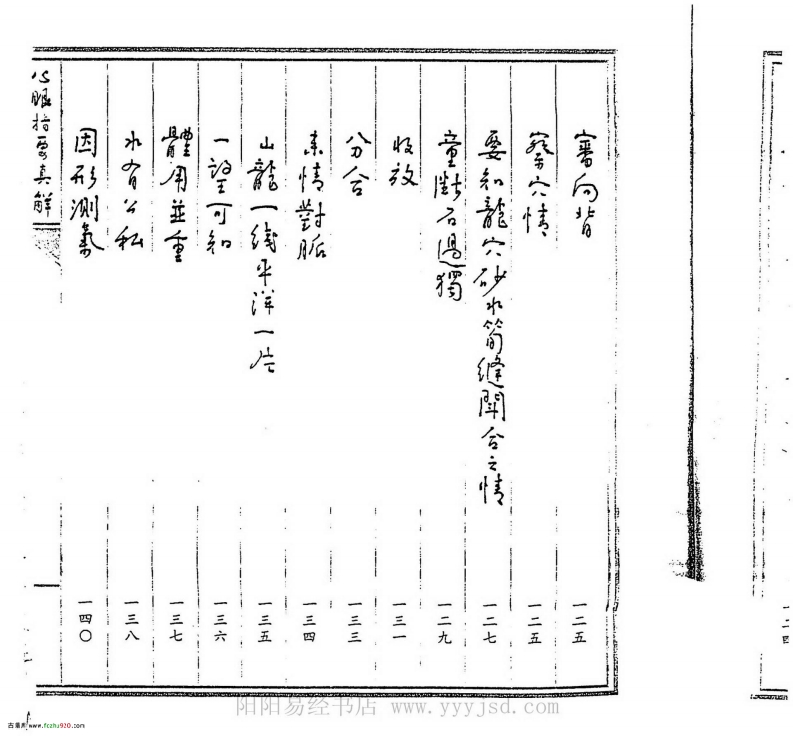 審向背 一二五
察穴情 一二五
要知龍穴砂水筋縫闔合之情 一二七
童斷石過獨 一二九
收放 一三一
分合 一三三
乘情對脈 一三四
山龍一線平洋一片 一三五
一望可知 一三六
體用並重 一三七
水有公私 一三八
因形測氣 一四〇
心眼指要真解
一二四
阳阳易经书店 www.yyyjsd.com
www.fczhu920.com